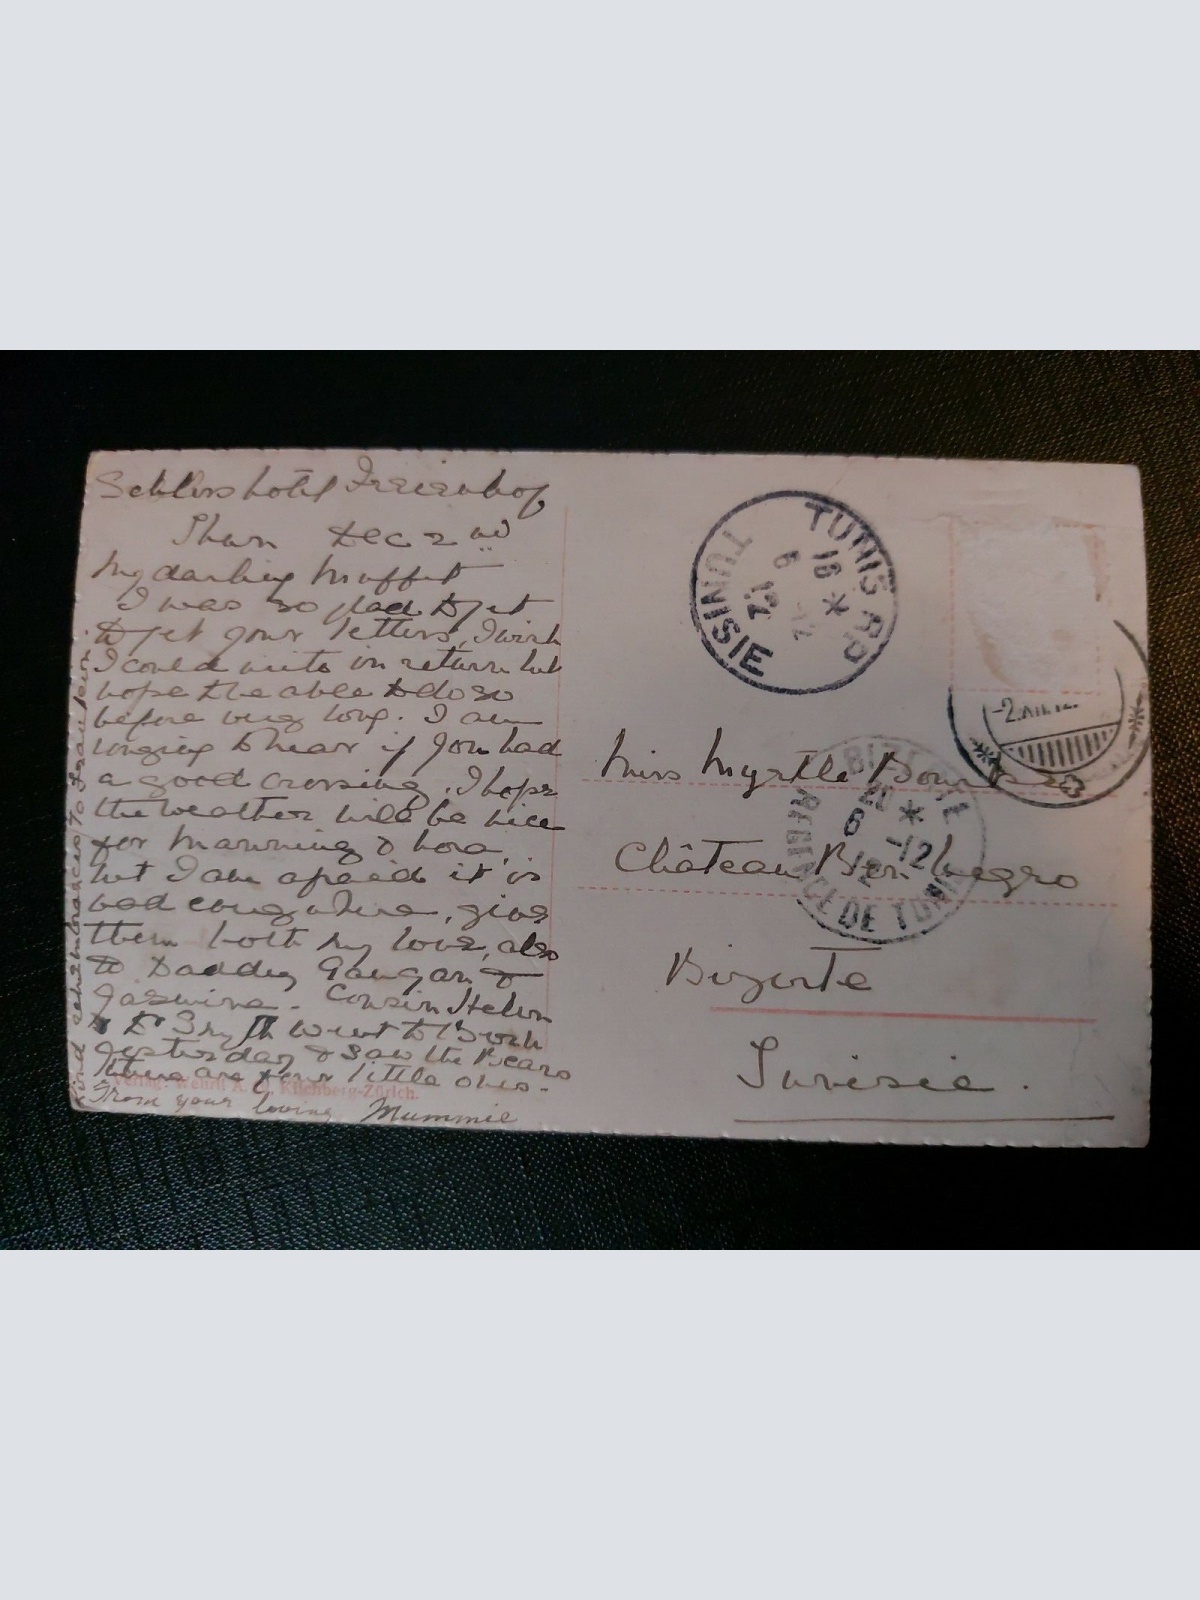 Schloss hotel Freienhof
Thun Dec 2nd
My darling Muffet
I was so glad to get
to get your letters, I wish
I could write in return but
hope to be able to do so
before very long. I am
longing to hear if you had
a good crossing. I hope
the weather will be nice
for Manning & Nora,
but I am afraid it is
bad everywhere, give
them both my love, also
to Daddy &
Jasmine. Cousin Helen
& went to Bern
yesterday & saw the Bears
there are four little ones.
From your loving Mummie
Kind remembrances to Fraulein.
Verlag: Wehrli A. G. Kilchberg-Zürich.
TUNIS RP
16 *
6 -12
12
TUNISIE
-2.XII.12.
Miss Myrtle
BIZERTE
20 *
6 -12
12
REGENCE DE TUNIS
Château Ben Negro
Bizerte
Tunisie.